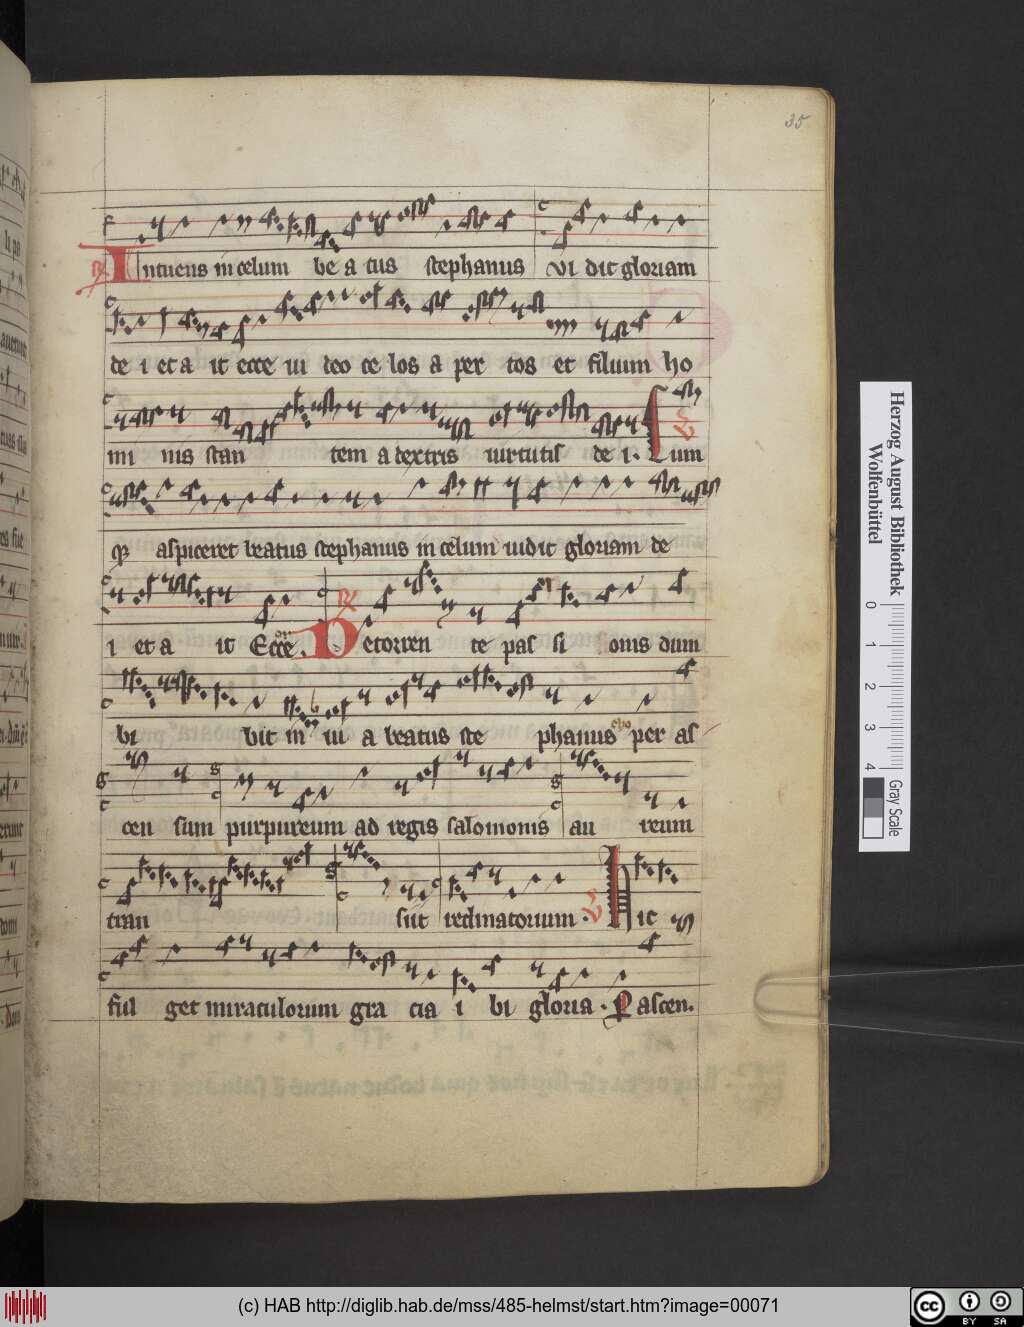 35
Intuens in celum be a tus stephanus vi dit gloriam
de i et a it ecce vi deo ce los a per tos et filium ho
mi nis stan tem a dextris virtutis de i. Cum
aspiceret beatus stephanus in celum vidit gloriam de
i et a it Ecce. De torren te pas si onis dum
bi bit in vi a beatus ste phanus per as
cen sum purpureum ad regis salomonis au reum
tran siit reclinatorium. Hic
ful get miraculorum gra cia i bi gloria. P ascen.
Herzog August Bibliothek
Wolfenbüttel
0 1 2 3 4 Gray Scale
(c) HAB http://diglib.hab.de/mss/485-helmst/start.htm?image=00071
cc BY SA